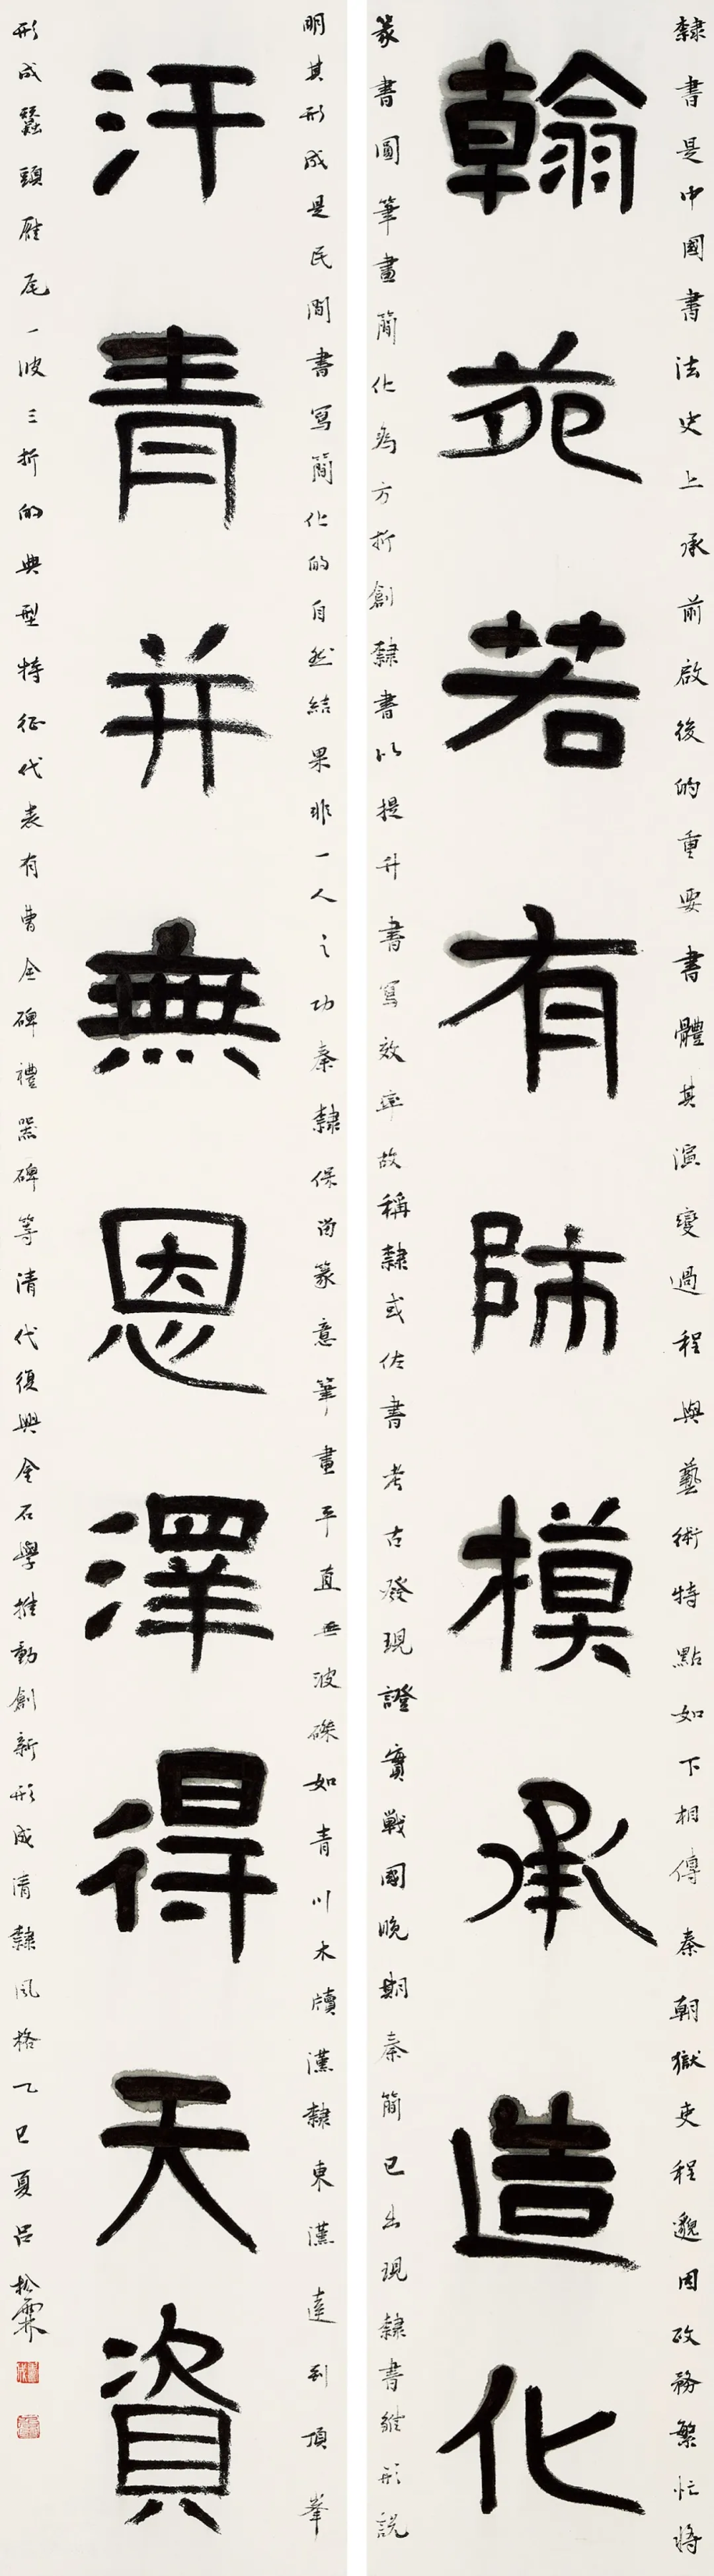 隸書是中國書法史上承前啟後的重要書體其演變過程與藝術特點如下相傳秦朝獄吏程邈因政務繁忙將
翰苑若有師模承造化
篆書圓筆畫簡化為方折創隸書以提升書寫效率故稱隸或佐書考古發現證實戰國晚期秦簡已出現隸書雛形説
明其形成是民間書寫簡化的自然結果非一人之功秦隸保留篆意筆畫平直無波磔如青川木牘漢隸東漢達到頂峯
汗青并無恩澤得天資
形成蠶頭雁尾一波三折的典型特征代表有曹全碑禮器碑等清代復興金石學推動創新形成清隸風格乙巳夏呂松霖